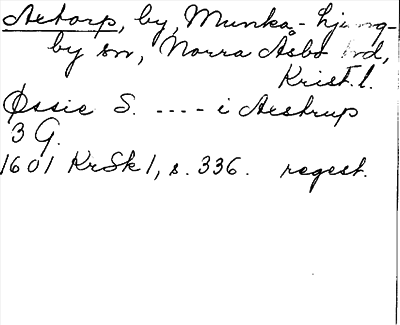 Aetorp, by, Munka-Ljung-
by sn, Norra Åsbo hrd,
Krist. l.
Øssie S. ---- i Aestrup
3 G.
1601 KrSk 1, s. 336. regest.